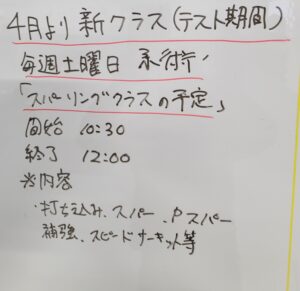 4月より新クラス(テスト期間)
毎週土曜日
「スパーリングクラスの予定」
開始 10:30
終了 12:00
※内容
・打ち込み、スパー、Pスパー
補強、スピードサーキット等